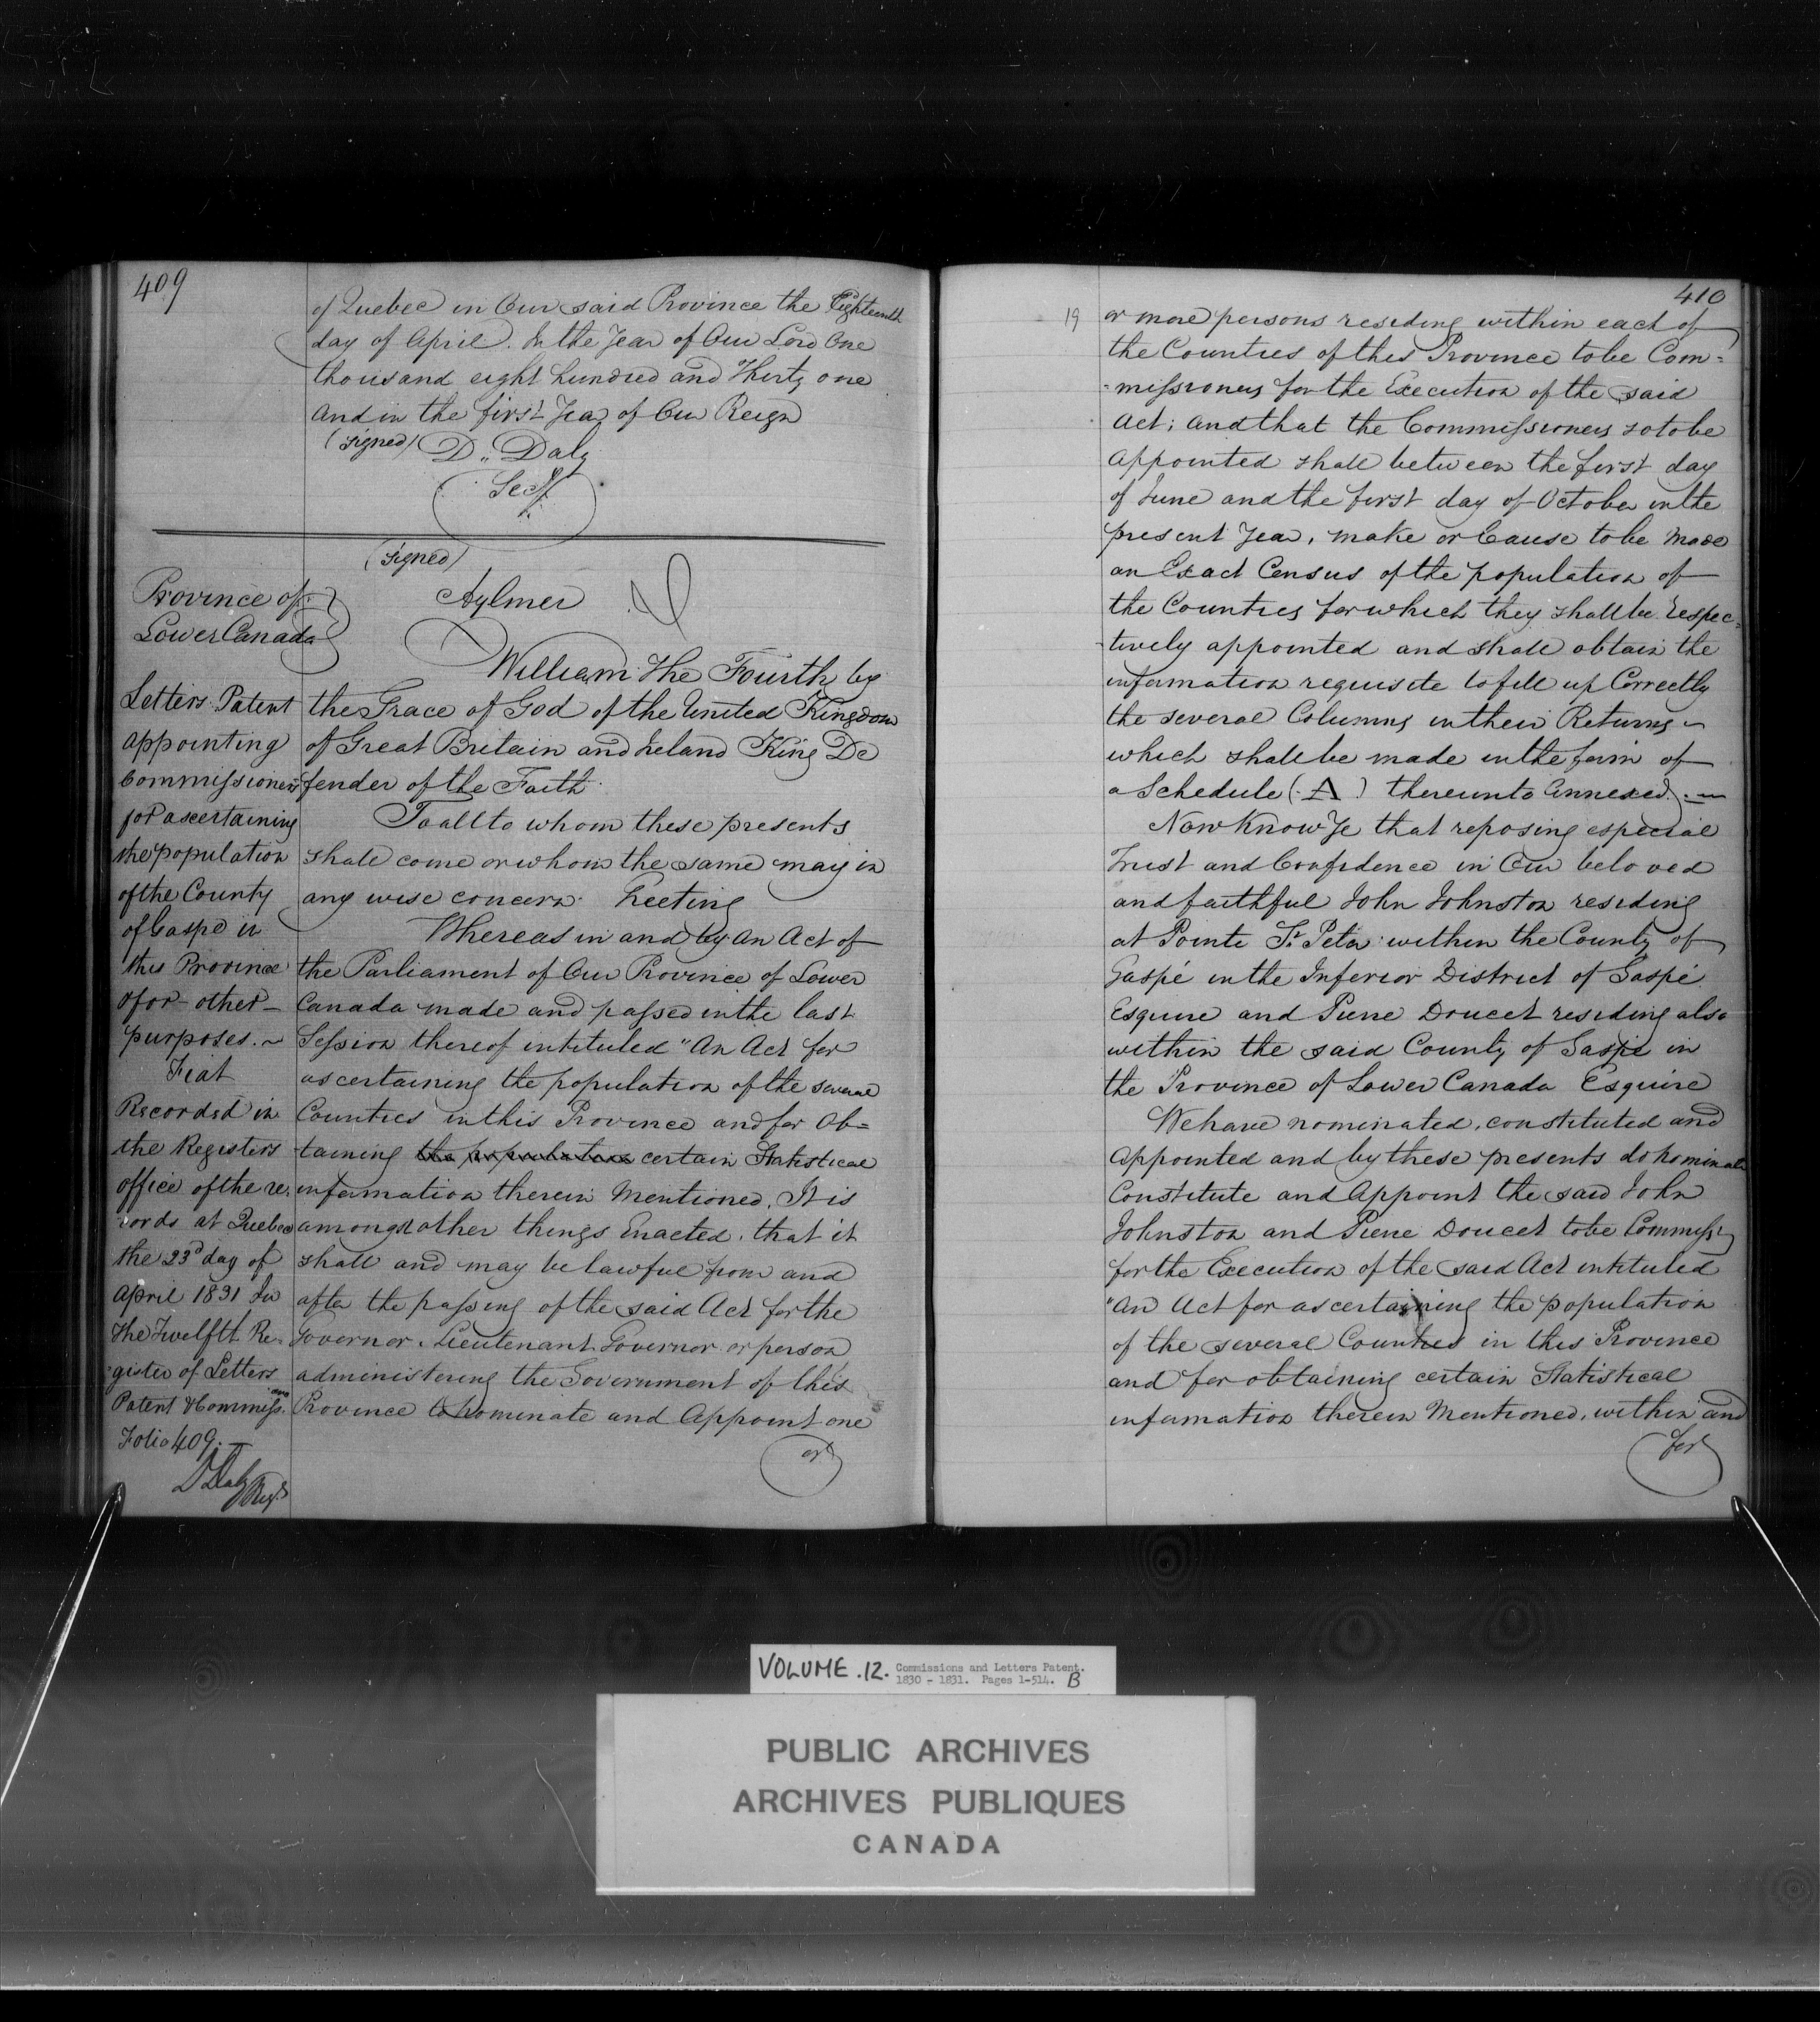 409
of Quebec in Our said Province the Eighteenth
day of April. In the Year of Our Lord One
thousand eight hundred and Thirty one
and in the first Year of Our Reign
(signed) D. Daly
Secy.
(signed)
Province of
Lower Canada
Aylmer
Letters Patent
appointing
Commissioners
for ascertaining
the population
of the County
of Gaspé in
this Province
& for other
purposes. ~
Fiat
Recorded in
the Registers
office of the re,
cords at Quebec
the 23d day of
April 1831 In
the Twelfth Re-
gister of Letters
Patent & Commiss.ions
Folio 409.
D Daly Regr.
William the Fourth by
the Grace of God of the United Kingdom
of Great Britain and Ireland King De
fender of the Faith.
To all to whom these presents
shall come or whom the same may in
any wise concern. Greeting
Whereas in and by An Act of
the Parliament of Our Province of Lower
Canada made and passed in the last
Session thereof intituled "An Act for
ascertaining the population of the several
Counties in this Province and for Ob=
taining the population certain Statistical
information therein Mentioned. It is
amongst other things Enacted, that it
shall and may be lawful from and
after the passing of the said Act for the
Governor, Lieutenant Governor or person
administering the Government of this
Province to Nominate and Appoint one
or
410
19
or more persons residing within each of
the Counties of this Province to be Com=
=missioners for the Execution of the said
Act; and that the Commissioners so to be
appointed shall between the first day
of June and the first day of October in the
present Year, make or Cause to be Made
an Exact Census of the population of
the Counties for which they shall be respec=
-tively appointed and shall obtain the
information requisite to fill up Correctly
the several Columns in their Returns ~
which shall be made in the form of
a Schedule (A) thereunto Annexed. ~
Now Know Ye that reposing especial
Trust and Confidence in Our beloved
and faithful John Johnston residing
at Pointe St. Peter within the County of
Gaspé in the Inferior District of Gaspé
Esquire and Pierre Doucet residing also
within the said County of Gaspé in
the Province of Lower Canada Esquire
We have nominated, constituted and
Appointed and by these presents do Nominate
Constitute and Appoint the said John
Johnston and Pierre Doucet to be Commissrs
for the Execution of the said Act intituled
"An Act for ascertaining the population
of the several Counties in this Province
and for obtaining certain Statistical
information therein Mentioned, within and
for
VOLUME .12. Commissions and Letters Patent.
1830 - 1831. Pages 1-514. B
PUBLIC ARCHIVES
ARCHIVES PUBLIQUES
CANADA